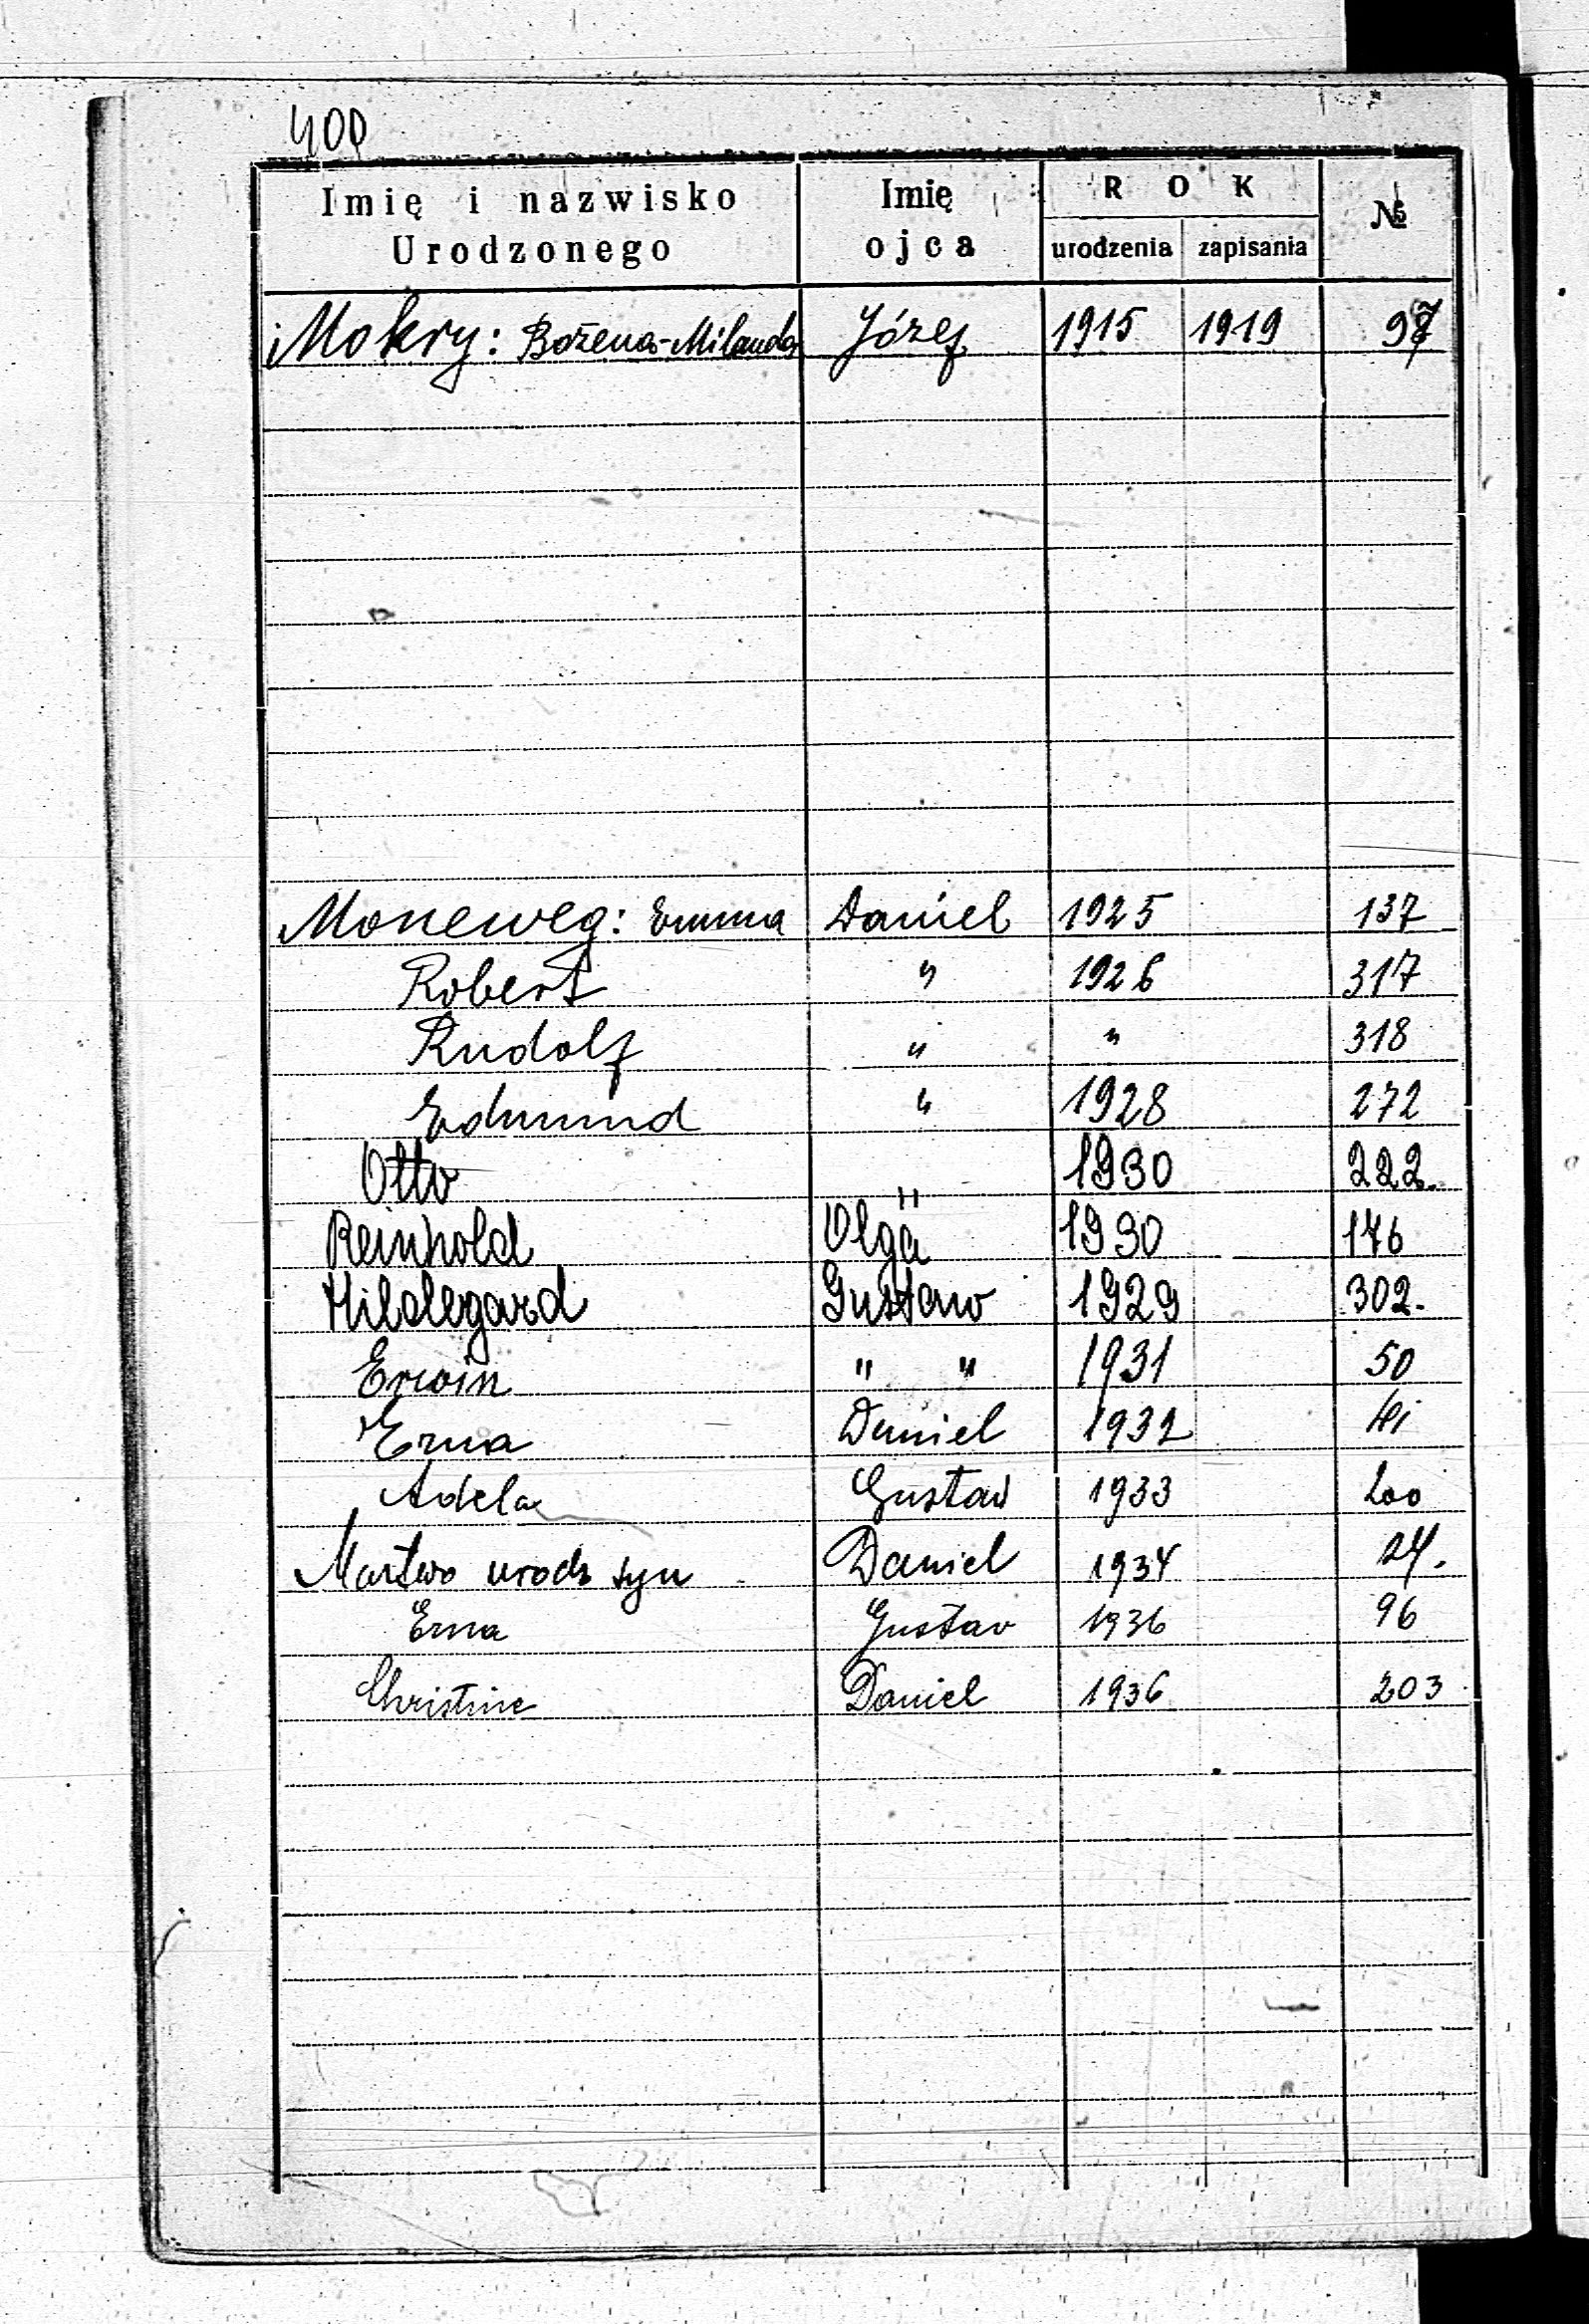 400
Imię i nazwisko Urodzonego Imię ojca ROK urodzenia zapisania №
Mokry: Bożena-Milanda Józef 1915 1919 97
Moneweg: Emma Daniel 1925 137
Robert " 1926 317
Rudolf " " 318
Edmund " 1928 272
Otto " 1930 222.
Reinhold Olga 1930 176
Hildegard Gustaw 1929 302.
Erwin " " 1931 50
Erna Daniel 1932
Adela Gustav 1933 200
Martwo urodz syn Daniel 1934 24.
Erna Gustav 1936 96
Christine Daniel 1936 203